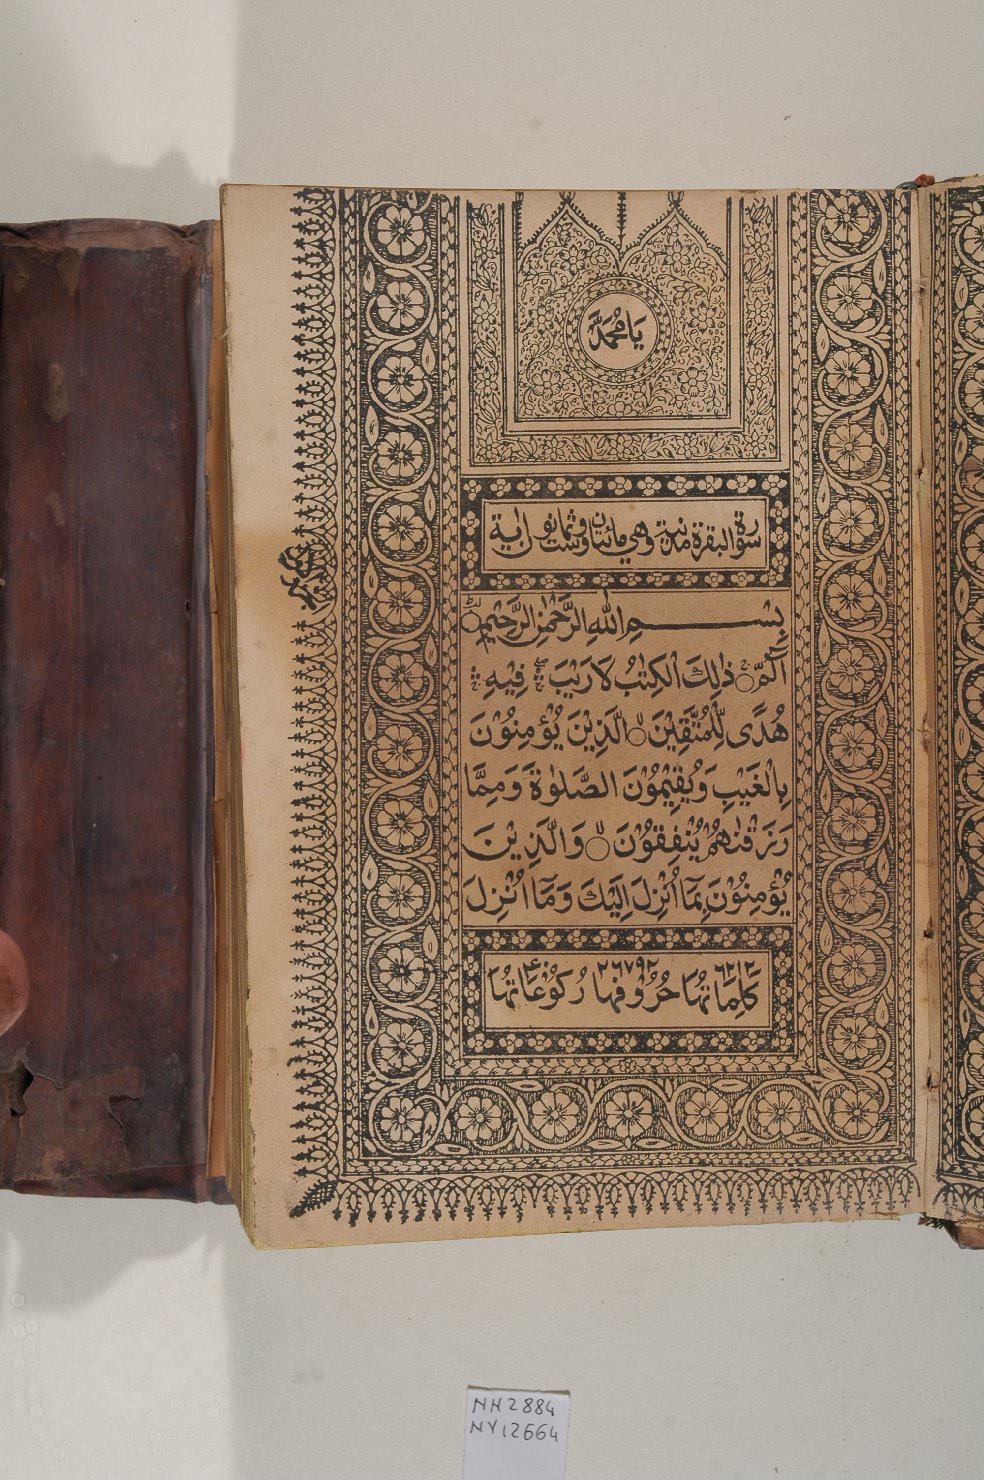 يَا مُحَمَّدُ
سورة البقرة مدنية وهي مائتان وست وثمانون اية
بِسْمِ اللّٰهِ الرَّحْمٰنِ الرَّحِيْمِ
الٓمّٓ ۚ ذٰلِكَ الْكِتٰبُ لَا رَيْبَ ۛ فِيْهِ ۛ
هُدًى لِّلْمُتَّقِيْنَ ۙ الَّذِيْنَ يُؤْمِنُوْنَ
بِالْغَيْبِ وَيُقِيْمُوْنَ الصَّلٰوةَ وَمِمَّا
رَزَقْنٰهُمْ يُنْفِقُوْنَ ۙ وَالَّذِيْنَ
يُؤْمِنُوْنَ بِمَآ اُنْزِلَ اِلَيْكَ وَمَآ اُنْزِلَ
كَلِمَاتُهَا حُرُوْفُهَا ٢٦٧٩٢ رُكُوْعَاتُهَا ٤٠
NH2884
NY12664